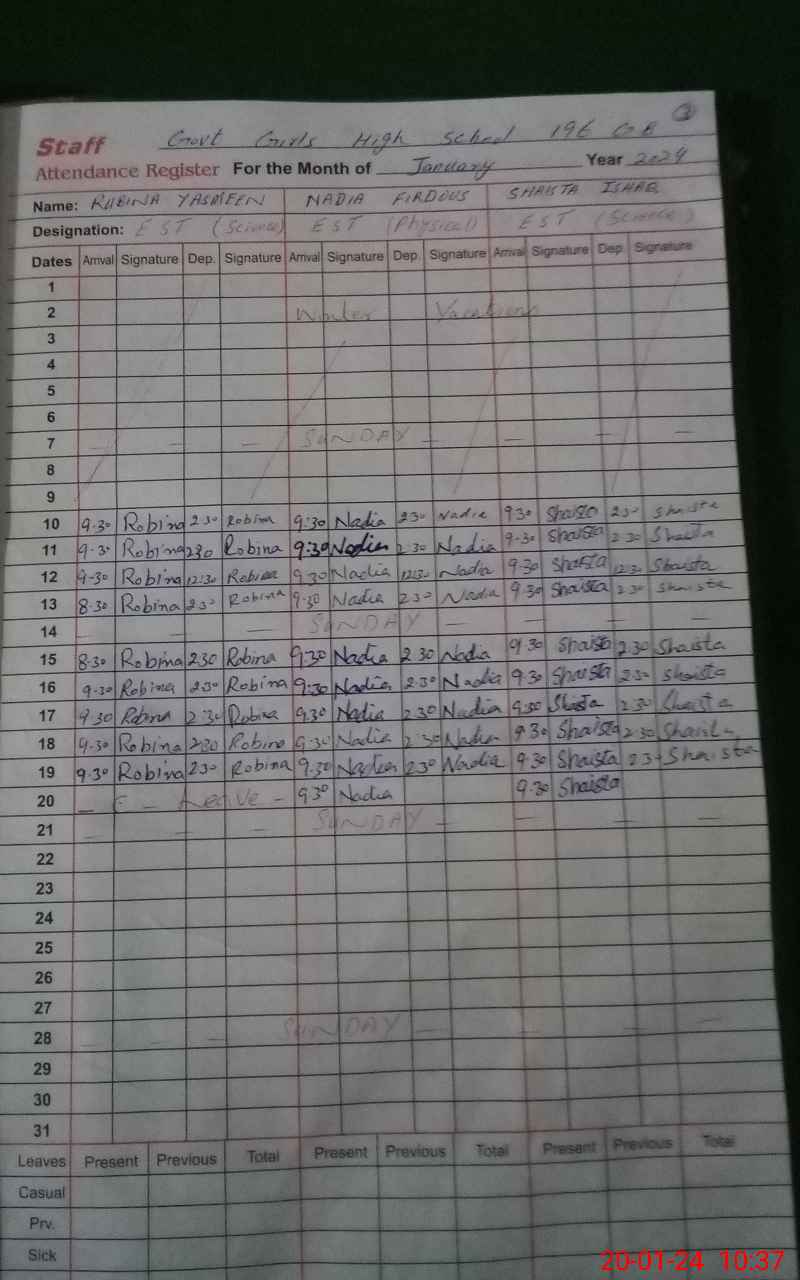 Govt Girls High School 196 GB
Staff
Attendance Register For the Month of January Year 2024
Name: RUBINA YASMEEN NADIA FIRDOUS SHAISTA ISHAQ
Designation: EST (Science) EST (Physical) EST (Science)
Dates Arrival Signature Dep. Signature Arrival Signature Dep. Signature Arrival Signature Dep Signature
1
2 Winter Vacations
3
4
5
6
7 — — — SUNDAY — — — —
8
9
10 9.30 Robina 2.30 Robina 9:30 Nadia 2.30 Nadia 9.30 Shaista 2.30 Shaista
11 9.30 Robina 2.30 Robina 9:30 Nadia 2.30 Nadia 9.30 Shaista 2.30 Shaista
12 9.30 Robina 12:30 Robina 9.30 Nadia 12:30 Nadia 9.30 Shaista 12:30 Shaista
13 8.30 Robina 2.30 Robina 9.30 Nadia 2.30 Nadia 9.30 Shaista 2.30 Shaista
14 — — — SUNDAY — — — —
15 8.30 Robina 2.30 Robina 9:30 Nadia 2.30 Nadia 9.30 Shaista 2.30 Shaista
16 9.30 Robina 2.30 Robina 9:30 Nadia 2.30 Nadia 9.30 Shaista 2.30 Shaista
17 9.30 Robina 2.30 Robina 9.30 Nadia 2.30 Nadia 9.30 Shaista 2.30 Shaista
18 9.30 Robina 2.30 Robina 9.30 Nadia 2.30 Nadia 9.30 Shaista 2.30 Shaista
19 9.30 Robina 2.30 Robina 9.30 Nadia 2.30 Nadia 9.30 Shaista 2.3 Shaista
20 — — Leave — 9.30 Nadia 9.30 Shaista
21 — — — SUNDAY — — — —
22
23
24
25
26
27
28 — — — SUNDAY — — — —
29
30
31
Leaves Present Previous Total Present Previous Total Present Previous Total
Casual
Prv.
Sick
20-01-24 10:37